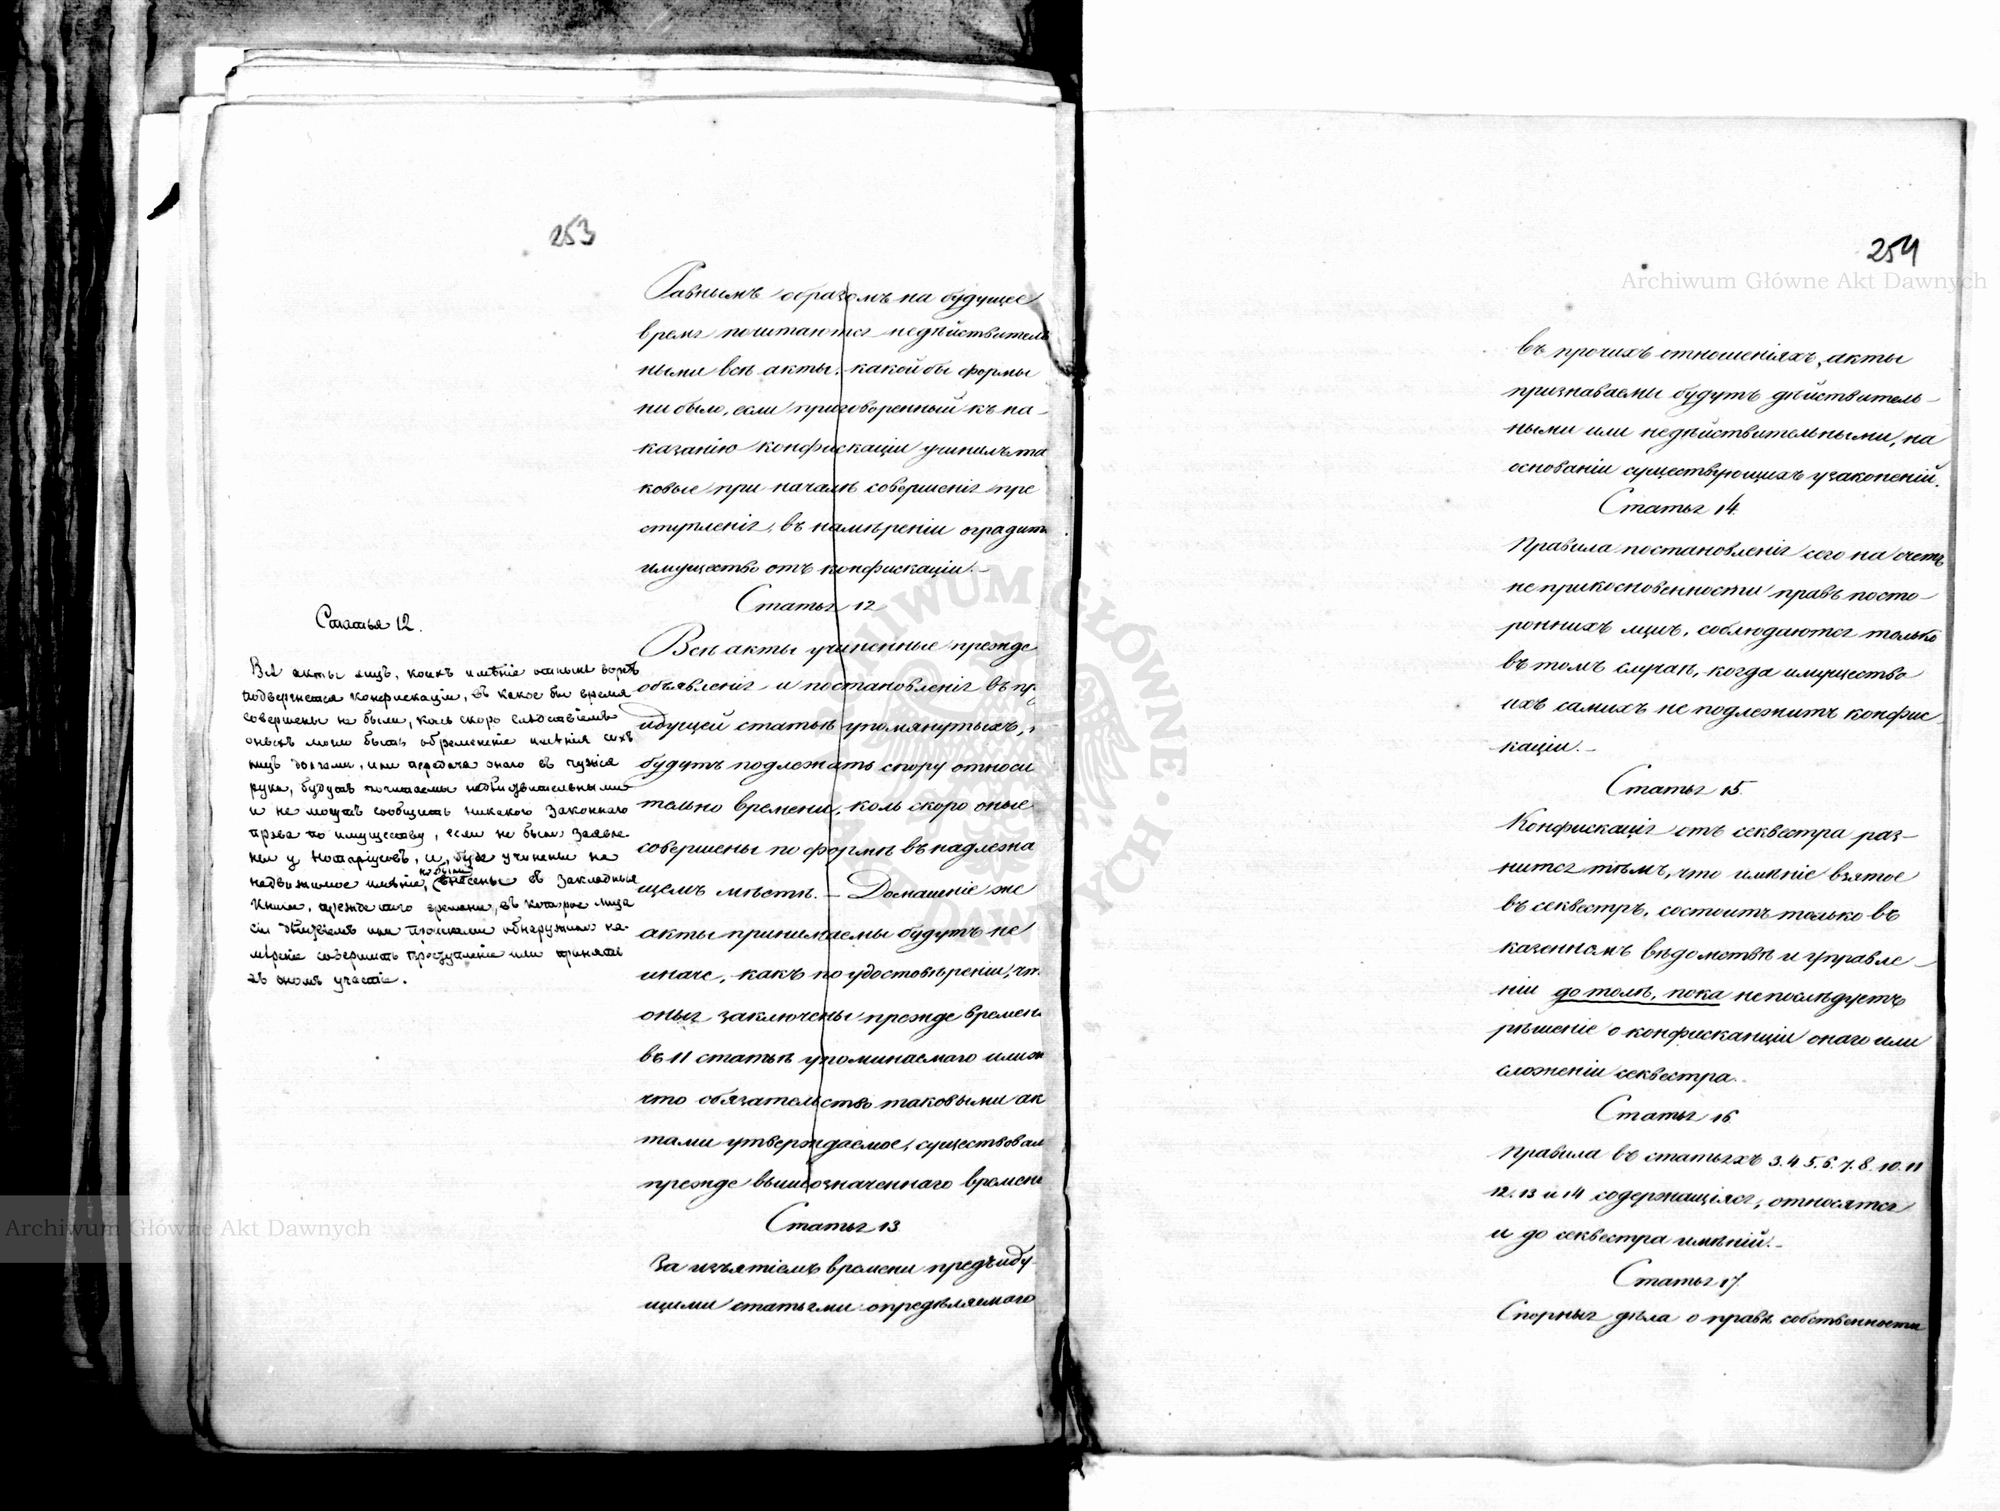 253
Равнымъ образомъ на будущее
время почитаются недѣйствитель
ными всѣ акты, какой бы формы
ни было, если приговоренный къ на-
казанію конфискаціи учинилъ та
ковые при началѣ совершенія пре
ступленія, въ намѣреніи оградить
имущество отъ конфискаціи.-
Статья 12
Всѣ акты учиненные прежде
объявленія и постановленія въ пр
идущей статьѣ упомянутыхъ,
будутъ подлежать спору относи
тельно времени, коль скоро оные
совершены по формѣ въ надлежа
щемъ мѣстѣ. - Домашніе же
акты принимаемы будутъ не
иначе, какъ по удостовѣреніи, чт
оныя заключены прежде времен
въ 11 статьѣ упоминаемаго или ж
что обязательство таковыми ак
тами утверждаемое, существовал
прежде вышеозначеннаго времени
Статья 13
За изъятіемъ времени предъиду-
щими статьями опредѣляемаго
Статья 12.
Всѣ акты лицъ, коихъ имѣніе
подвергнется конфискаціи, въ какое бы время
совершены не были, коль скоро слѣдствіемъ
оныхъ могло быть обремененіе имѣнія сихъ
лицъ долгами, или передача онаго въ чужія
руки, будутъ почитаемы недѣйствительными
и не могутъ сообщить никакого законнаго
права по имуществу, если не были заявле-
ны у Нотаріусовъ, и, буде учинены на
недвижимое имѣніе, не были внесены въ закладныя
книги, прежде того времени, въ которое лица
сіи дѣйствіемъ или происками обнаружили на-
мѣреніе совершить преступленіе или принять
въ ономъ участіе.
254
въ прочихъ отношеніяхъ, акты
признаваемы будутъ дѣйствитель-
ными или недѣйствительными, на
основаніи существующихъ узаконеній.
Статья 14.
Правила постановленія сего на счетъ
неприкосновенности правъ посто-
роннихъ лицъ, соблюдаются только
въ томъ случаѣ, когда имущество
ихъ самихъ не подлежитъ конфис
каціи.-
Статья 15.
Конфискація отъ секвестра раз-
нится тѣмъ, что имѣніе взятое
въ секвестръ, состоитъ только въ
казенномъ вѣдомствѣ и управле-
ніи до толѣ, пока непослѣдуетъ
рѣшеніе о конфисканціи онаго или
сложеніи секвестра.
Статья 16.
Правила въ статьяхъ 3.4.5.6.7.8.10.11
12.13 и 14 содержащіяся, относятся
и до секвестра имѣній.-
Статья 17.
Спорныя дѣла о правѣ собственности
Archiwum Główne Akt Dawnych
Archiwum Główne Akt Dawnych
ARCHIWUM GŁÓWNE AKT DAWNYCH